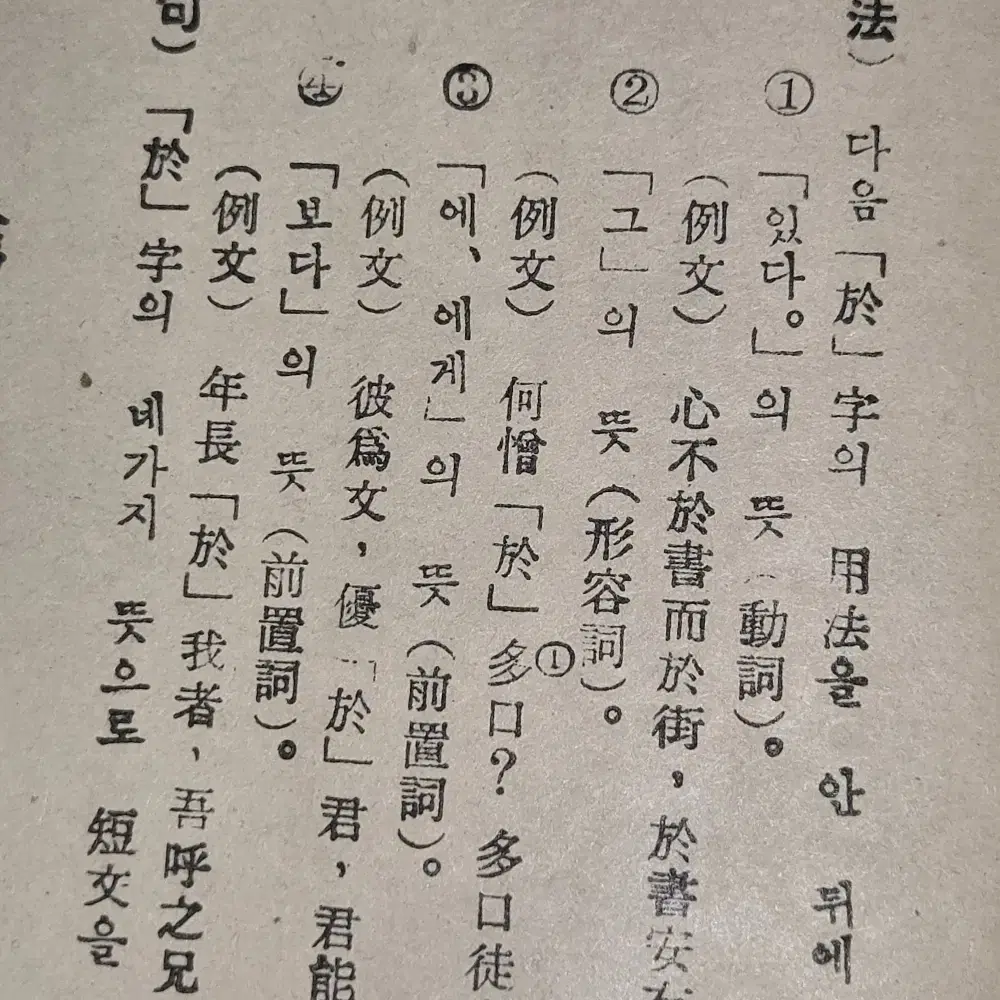 法) 다음「於」字의 用法을 안 뒤에
① 「있다。」의 뜻 (動詞)。
(例文) 心不於書而於街, 於書安
② 「그」의 뜻 (形容詞)。
(例文) 何憎「於」多口①? 多口徒
③ 「에、에게」의 뜻 (前置詞)。
(例文) 彼爲文, 優「於」君, 君能
④ 「보다」의 뜻 (前置詞)。
(例文) 年長「於」我者, 吾呼之兄
句) 「於」字의 네가지 뜻으로 短文을